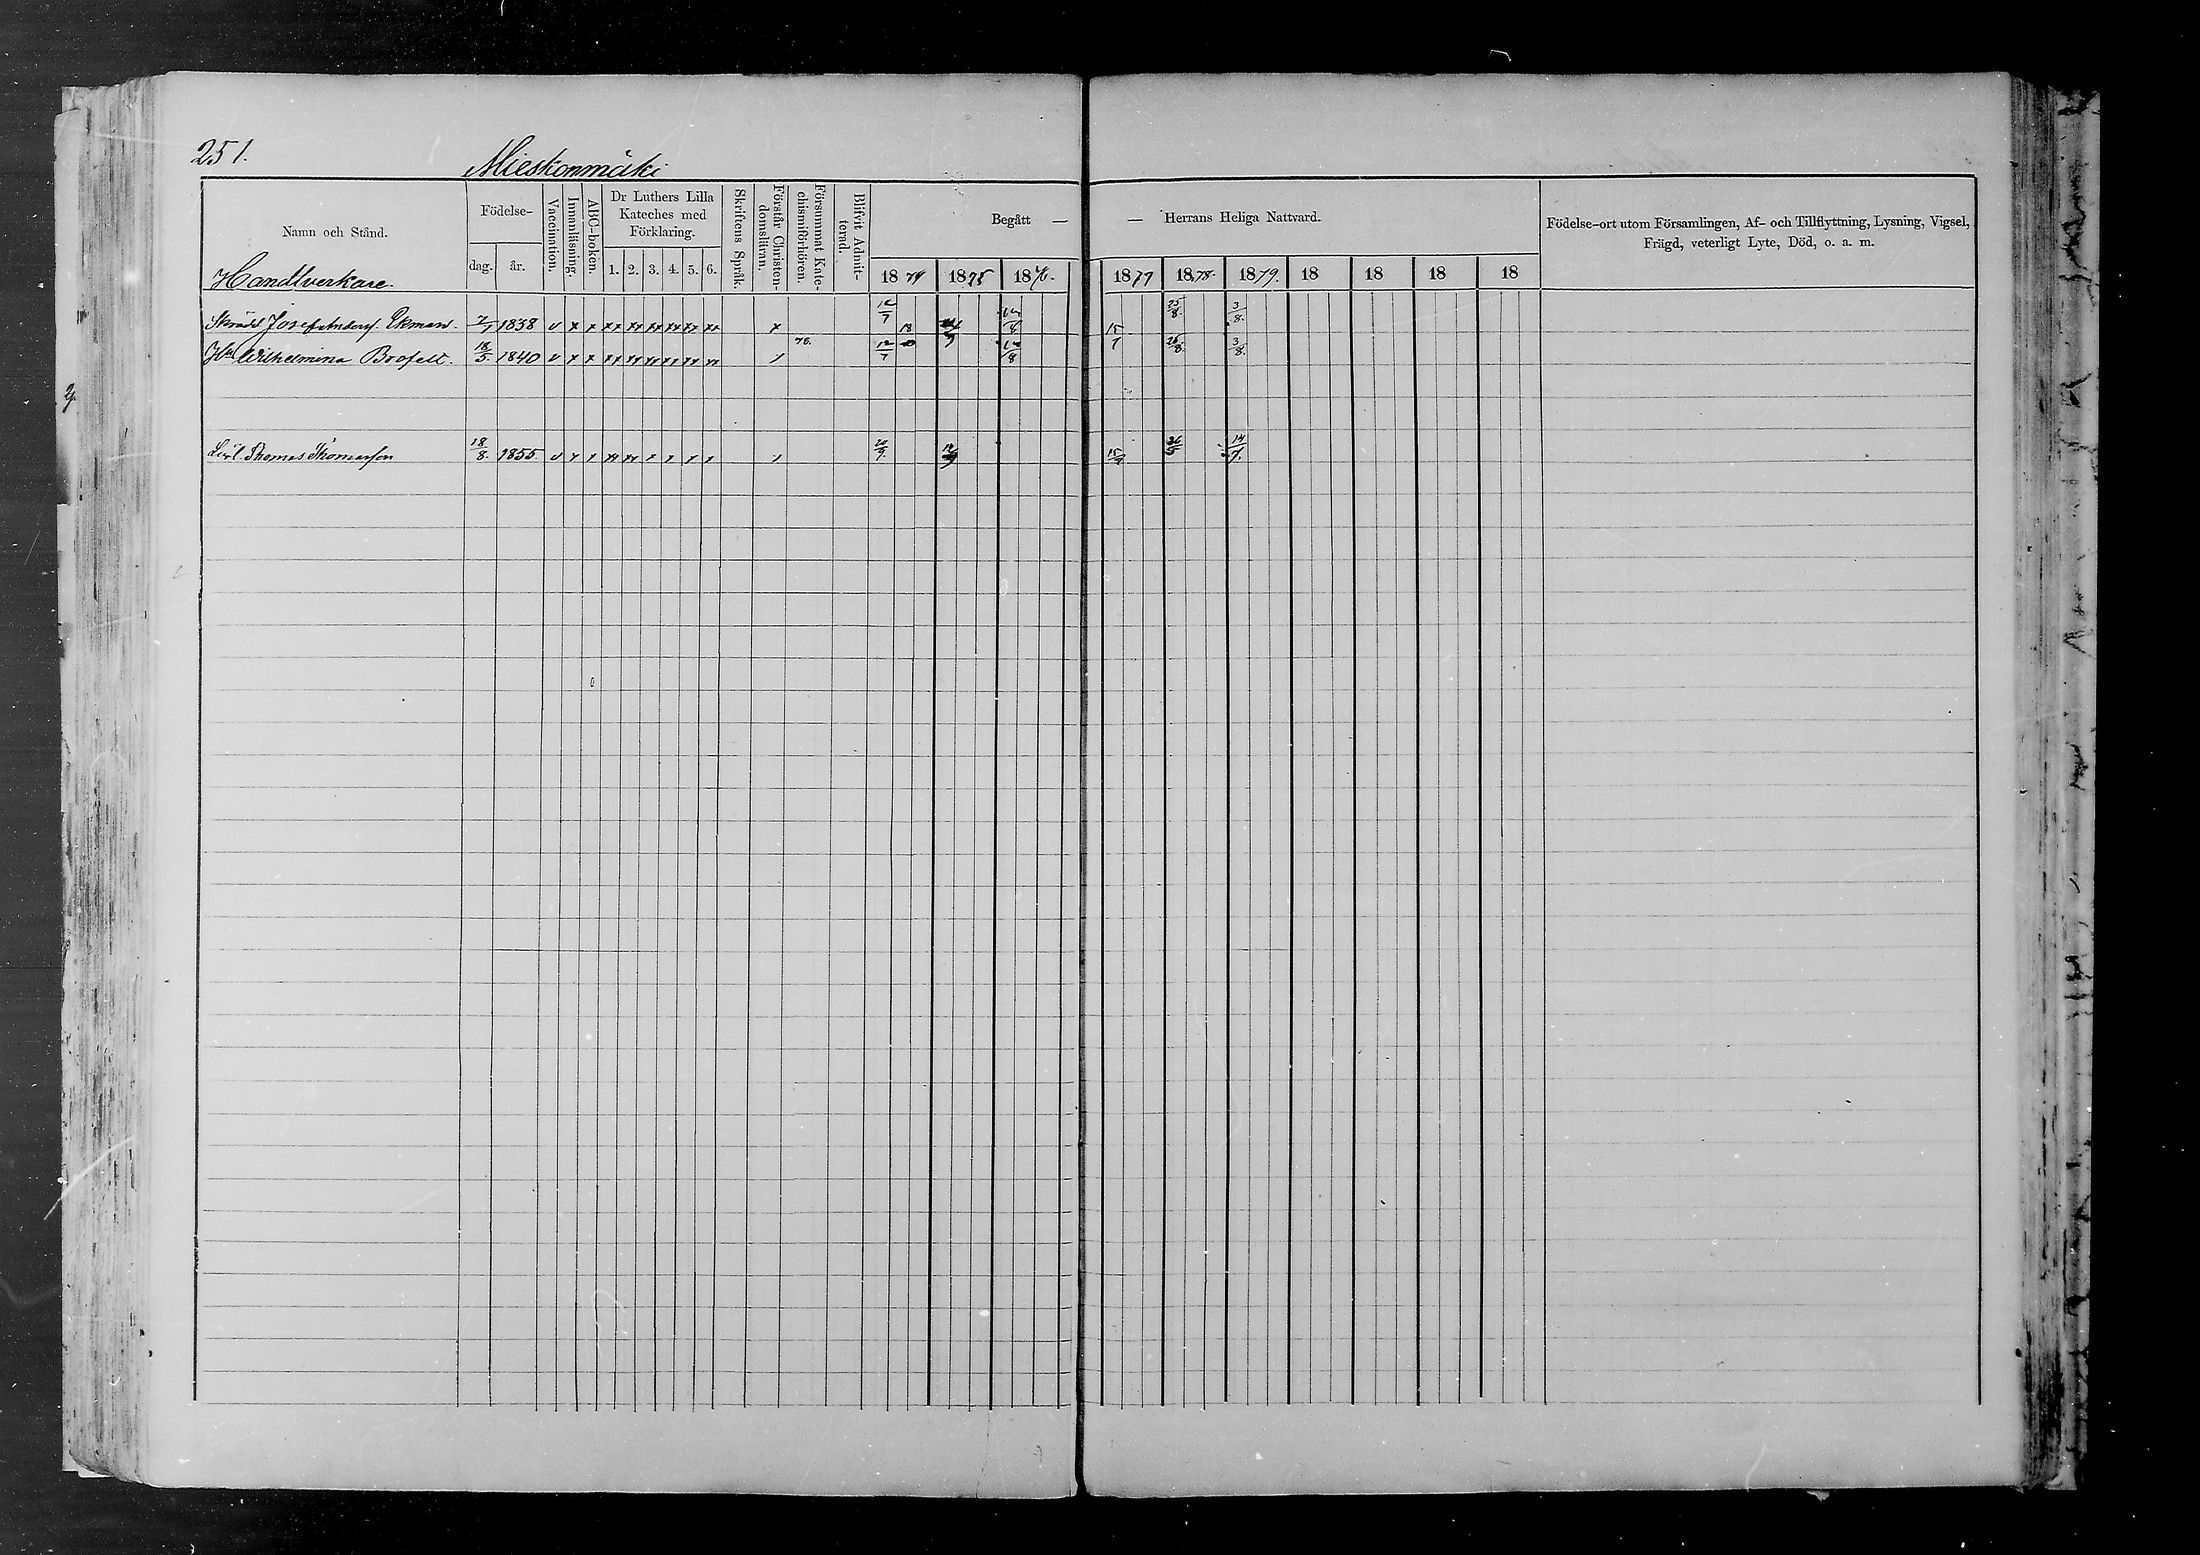 251.
Mieskonmäki
Namn och Stånd.
Födelse-
dag.
år.
Vaccination.
Innanläsning.
ABC-boken.
Dr Luthers Lilla
Kateches med
Förklaring.
1. 2. 3. 4. 5. 6.
Skriftens Språk.
Förstår Christen-
domsläran.
Försummat Kate-
chismiförhören.
Blifvit Admit-
terad.
Begått —
— Herrans Heliga Nattvard.
1874 1875 1876. 1877 1878. 1879. 18 18 18 18
Födelse-ort utom Församlingen, Af- och Tillflyttning, Lysning, Vigsel,
Frägd, veterligt Lyte, Död, o. a. m.
Handtverkare.
Josef Anderss. Ekman. 1838 v x x xx xx xx xx xx xx x 12/7 18 15/7 25/8 3/8.
Wilhelmina Brofelt. 18/5 1840 v x x xx xx xx xx xx xx 76. 12/7 3/8.
Thomas Thomasson 18/8 1855 v 14/7.